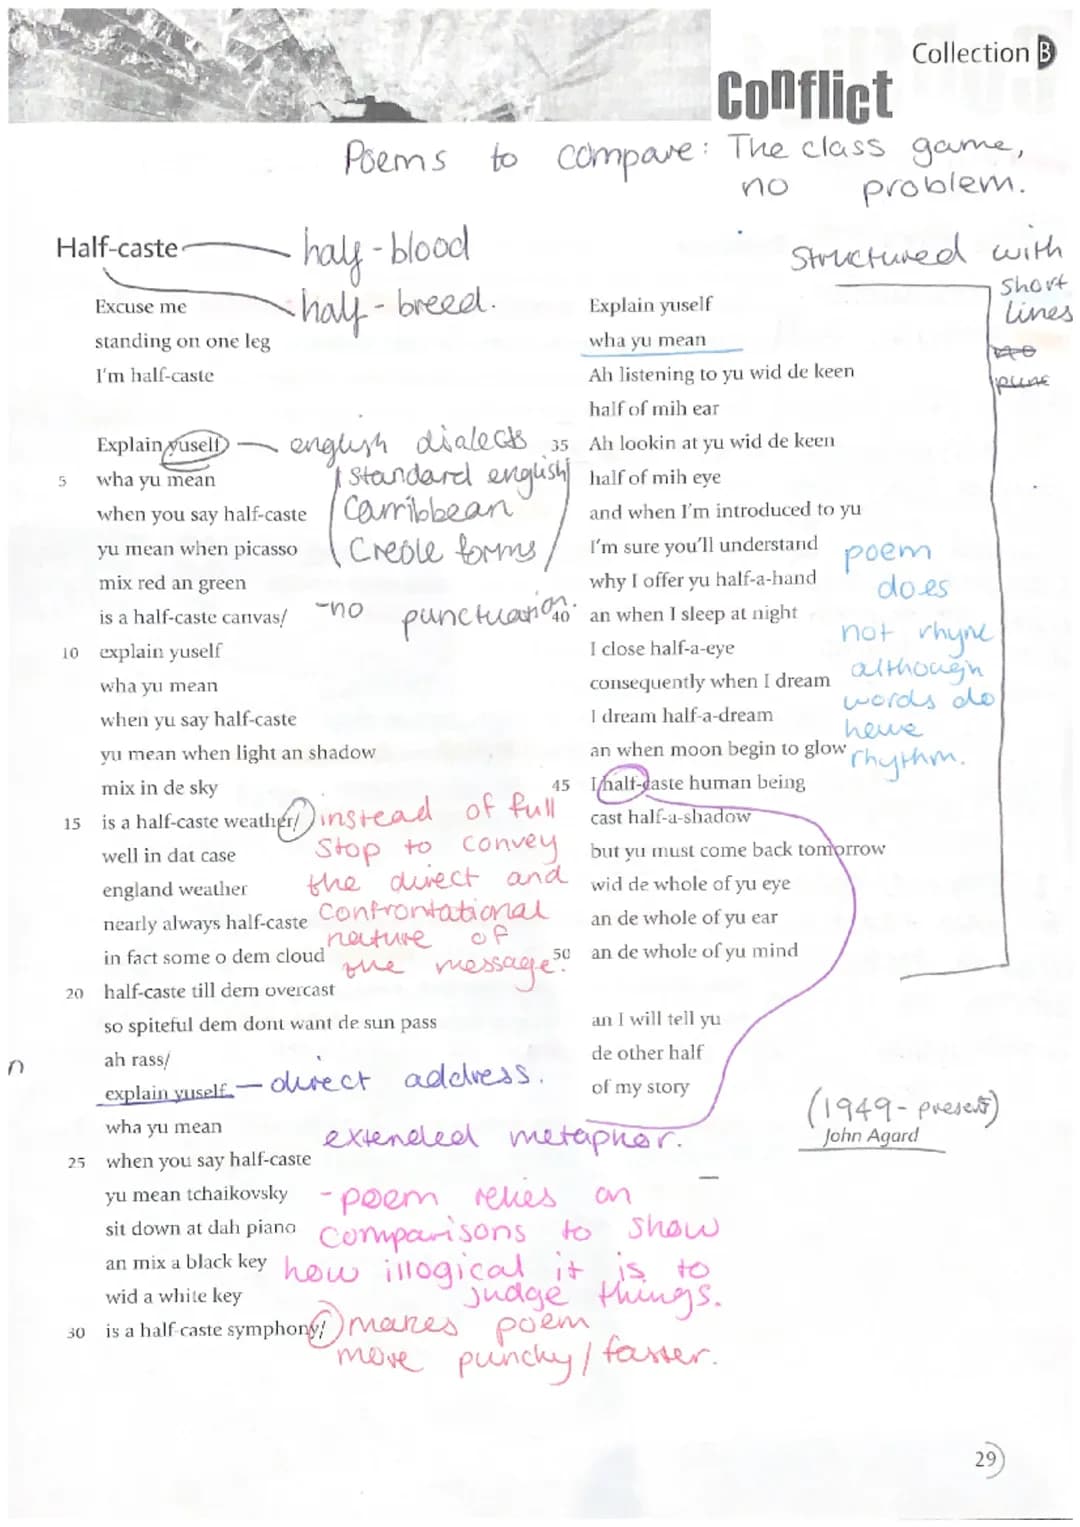 Collection B
Conflict
Poems to compare: The class game,
no problem.
Half-caste
half-blood
half-breed.
Excuse me
standing on one leg
I'm half-caste
Explain yuself
english dialects
5 wha yu mean
Standard english
when you say half-caste
Carribbean
yu mean when picasso
Creole forms
mix red an green
is a half-caste canvas/
-no punctuation.
10 explain yuself
wha yu mean
when yu say half-caste
yu mean when light an shadow
mix in de sky
15 is a half-caste weather/
instead of full
stop to convey
the direct and
confrontational
nature of
the message.
well in dat case
england weather
nearly always half-caste
in fact some o dem cloud
20 half-caste till dem overcast
so spiteful dem dont want de sun pass
ah rass/
explain yuself
- direct address.
wha yu mean
25 when you say half-caste
yu mean tchaikovsky
sit down at dah piano
an mix a black key
wid a white key
30 is a half-caste symphony/
extended metaphor.
- poem relies on
comparisons to show
how illogical it is to
judge things.
makes poem
more punchy/faster.
Structured with
short
lines
no
punc
Explain yuself
wha yu mean
Ah listening to yu wid de keen
half of mih ear
35 Ah lookin at yu wid de keen
half of mih eye
and when I'm introduced to yu
I'm sure you'll understand
why I offer yu half-a-hand
40 an when I sleep at night
I close half-a-eye
consequently when I dream
I dream half-a-dream
an when moon begin to glow
45 I half-caste human being
cast half-a-shadow
but yu must come back tomorrow
wid de whole of yu eye
an de whole of yu ear
50 an de whole of yu mind
an I will tell yu
de other half
of my story
poem
does
not rhyne
although
words do
have
rhythm.
(1949- present)
John Agard
n
29